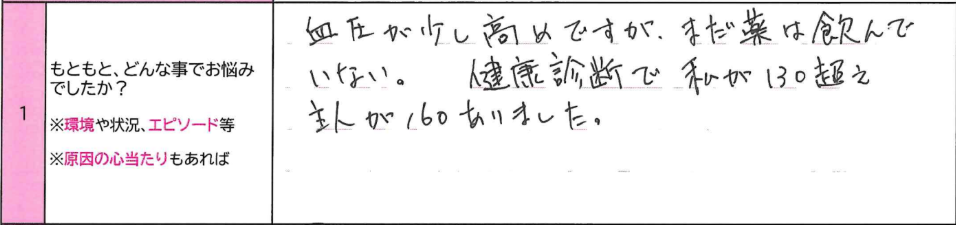 1
もともと、どんな事でお悩み
でしたか?
※環境や状況、エピソード等
※原因の心当たりもあれば
血圧が少し高めですが、まだ薬は飲んで
いない。 健康診断で私が130超え
主人が160ありました。